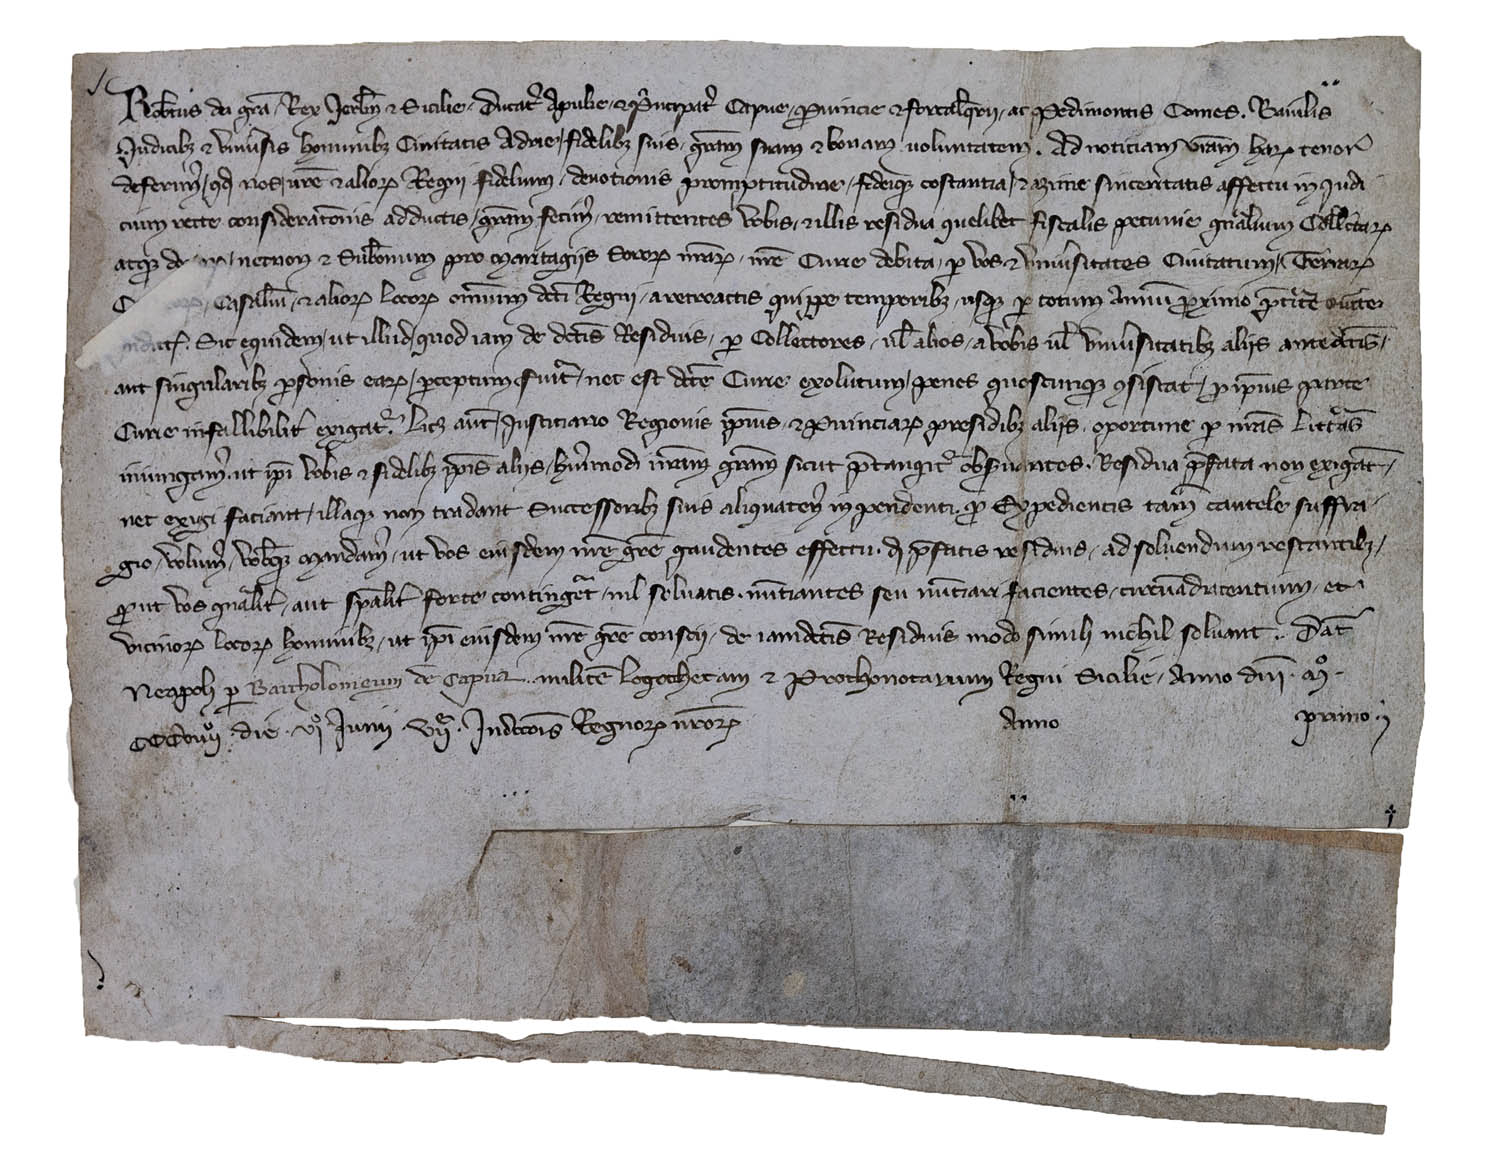 Rob̄tus dei gr̄a Rex Jerl̄m ⁊ Sicilie, Ducat' Apulie, ⁊ Principat' Capue, Prouincie ⁊ forcalq̄rii, ac Pedimontis Comes. Baiulis
Judicibꝫ ⁊ vniu̓sis hominibꝫ Ciuitatis Adrie, fidelibꝫ suis, gr̄am suam ⁊ bonam uoluntatem. Ad noticiam vr̄am haꝝ tenor̄
deferim̓, qđ nos, ur̄e ⁊ alioꝝ Regni fidelium, deuotionis promptitudine, fideiqꝫ costantia, ⁊ sinceritatis affectu in Judi
cium recte consideratōnis adductis, gr̄am fecim̓, remittentes vobis, ⁊ illis residua quelibet fiscalis pecunie gn̄alium Collectaꝝ
atqꝫ necnon ⁊ Subuc̄onum pro Maritagiis Soroꝝ nr̄aꝝ, nr̄e Curie debita, ꝑ vos ⁊ vniu̓sitates Ciuitatum, Terraꝝ
Casaliū, ⁊ alioꝝ locoꝝ omnium dc̄i Regni, a retroactis quippe temporibꝫ, usqꝫ ꝑ totum Annū proximo p̄terite
Indict̄. Sic equidem, ut illud, quod iam de dc̄is Residuis, ꝑ Collectores, ul̄ alios, a vobis ul̄ vniu̓sitatibꝫ aliis antedc̄is,
aut singularibꝫ ꝑsonis eaꝝ, ꝑceptum fuit, nec est dc̄e Curie exolutum, penes quoscunqꝫ ꝯsistat, ꝓ ip̄ius parte
Curie infallibilit̓ exigat̓. Lic̄ꝫ aut̄ Justiciario Regionis ip̄ius, ⁊ Prouinciaꝝ presidibꝫ aliis, oportune ꝑ nr̄as Litt̓as
iniungam̓, ut ip̄i vobis ⁊ fidelibꝫ ip̄is aliis, hui̓modi nr̄am gr̄am sicut p̄tangit̓ obseruantes, Residua p̄fata non exigāt,
nec exigi faciant, illaqꝫ non tradant Successoribꝫ suis aliquaten̓ inpendenti. ꝓ Expedientis tam̄ cautele suffra
gio, volum̓, vobisqꝫ mandam̓, ut vos eiusdem nr̄e gr̄e gaudentes effectu, đ p̄fatis residuis, ad soluendum restantibꝫ,
prout vos gn̄alit̓, aut spāalit̓ forte contingeret, nil soluatis. nūtiantes seu nūtiari facientes, circūadiacentium, et
vicinioꝝ locoꝝ hominibꝫ, ut ip̄i eiusdem nr̄e gr̄e conscii, de iamdc̄is Residuis modo simili nichil soluant. Dat̄
Neapoli ꝑ Bartholomeum de Capua militē logothetam ⁊ Prothonotarium Regni Sicilie, Anno dn̄i. Mº.
CCCouijº. die. vjº. Junii. vijᵉ. Indict̄ois Regnoꝝ nr̄oꝝ Anno primo.